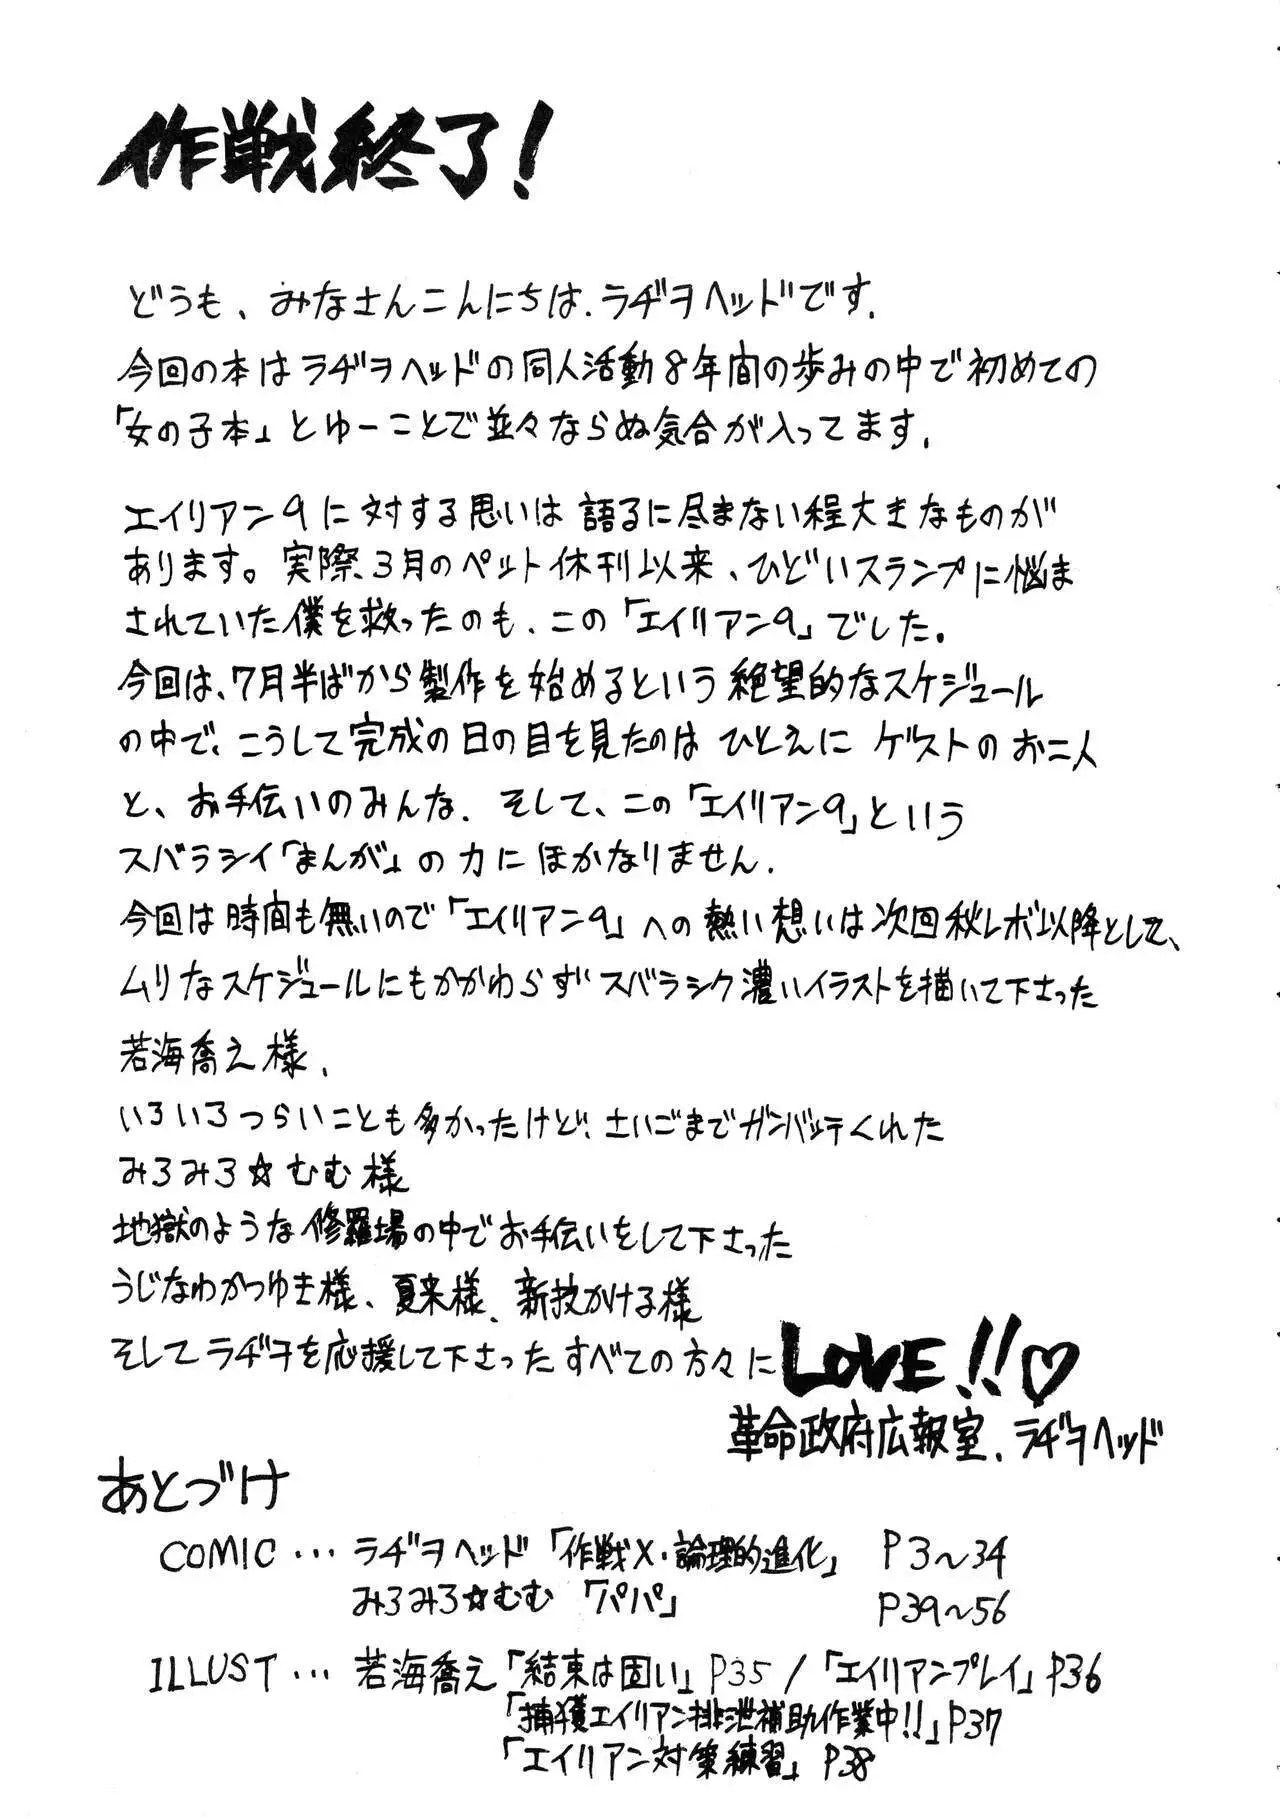 作戦終了!
どうも、みなさんこんにちは.ラヂヲヘッドです.
今回の本はラヂヲヘッドの同人活動8年間の歩みの中で初めての
「女の子本」とゆーことで並々ならぬ気合が入ってます.
エイリアン9に対する思いは語るに尽きない程大きなものが
あります。実際、3月のペット休刊以来、ひどいスランプに悩ま
されていた僕を救ったのも、この「エイリアン9」でした.
今回は、7月半ばから製作を始めるという絶望的なスケジュール
の中で、こうして完成の日の目を見たのはひとえにゲストのお二人
と、お手伝いのみんな.そして、この「エイリアン9」という
スバラシイ「まんが」の力にほかなりません.
今回は時間も無いので「エイリアン9」への熱い想いは次回秋レボ以降として、
ムリなスケジュールにもかかわらずスバラシク濃いイラストを描いて下さった
若海喬え様.
いろいろつらいことも多かったけど、さいごまでガンバッテくれた
みろみろ☆むむ様
地獄のような修羅場の中でお手伝いをして下さった
うじなわかつゆき様、夏来様、新技かける様
そしてラヂヲを応援して下さったすべての方々にLOVE!!♡
革命政府広報室.ラヂヲヘッド
あとづけ
COMIC…ラヂヲヘッド「作戦X・論理的進化」 P3~34
みろみろ☆むむ「パパ」 P39~56
ILLUST…若海喬え「結束は固い」P35/「エイリアンプレイ」P36
「捕獲エイリアン排泄補助作業中!!」P37
「エイリアン対策練習」P38